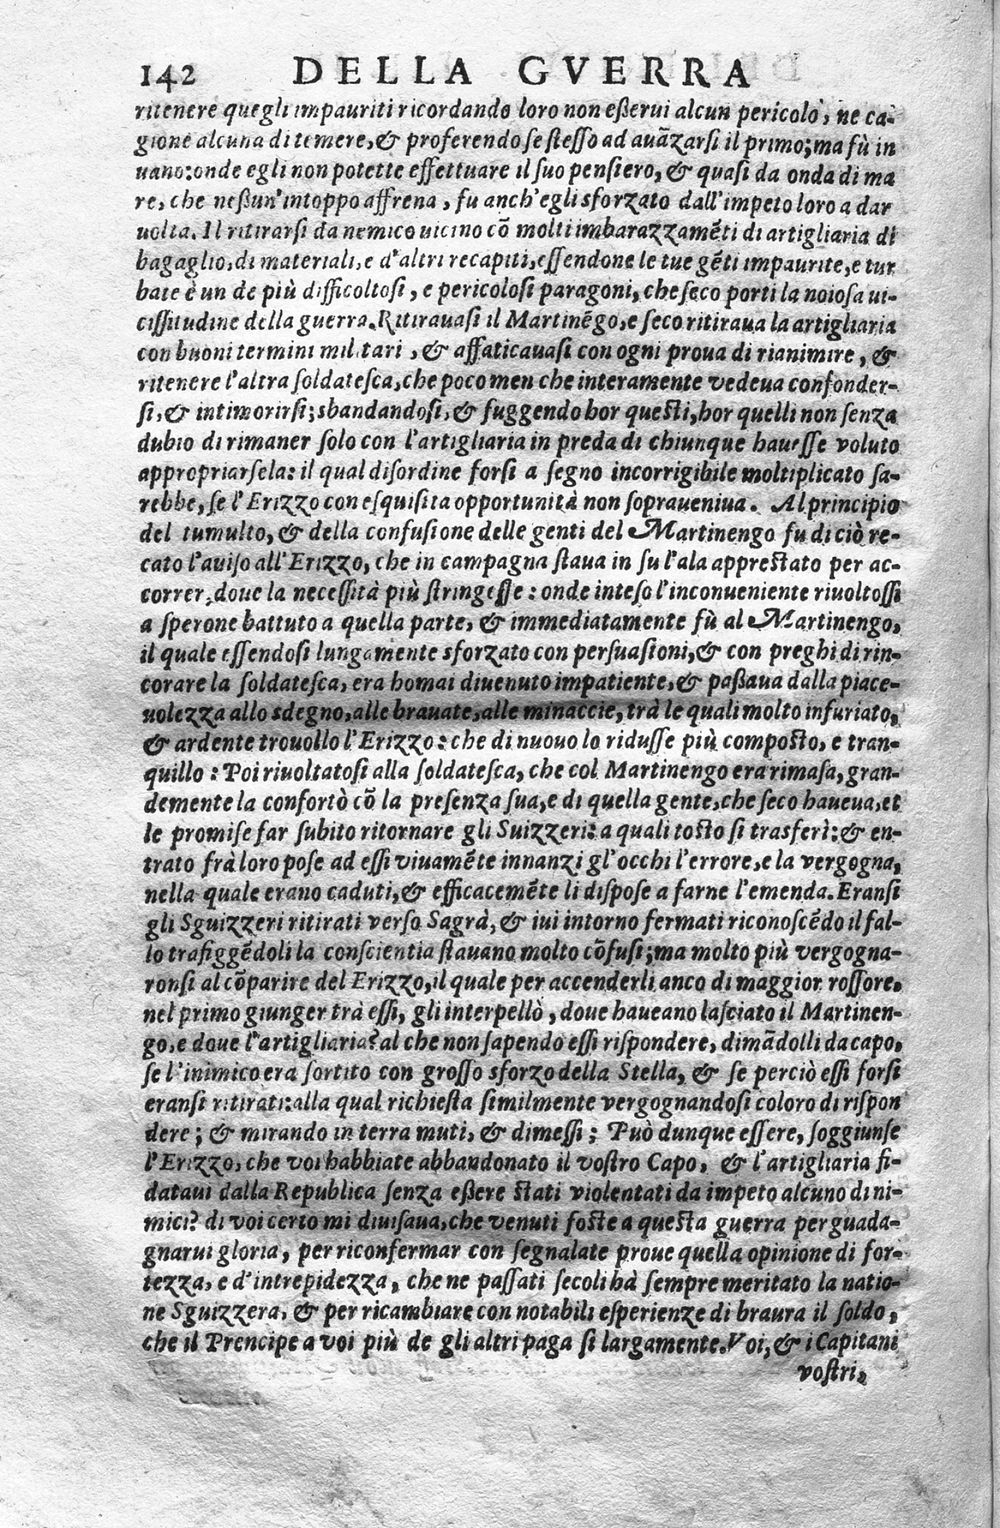 142 DELLA GVERRA
ritenere quegli impauriti ricordando loro non eßerui alcun pericolo, ne ca-
gione alcuna di temere, & proferendo se stesso ad auāzarsi il primo; ma fù in
uano: onde egli non potette effettuare il suo pensiero, & quasi da onda di ma
re, che neßun' intoppo affrena, fu anch'egli sforzato dall'impeto loro a dar
uolta. Il ritirarsi da nemico uicino cō molti imbarazzamēti di artigliaria di
bagaglio, di materiali, e d'altri recapiti, essendone le tue gēti impaurite, e tur
bate è un de più difficoltosi, e pericolosi paragoni, che seco porti la noiosa ui-
cissitudine della guerra. Ritirauasi il Martinēgo, e seco ritiraua la artigliaria
con buoni termini militari, & affaticauasi con ogni proua di rianimire, &
ritenere l'altra soldatesca, che poco men che interamente vedeua confonder-
si, & intimorirsi; sbandandosi, & fuggendo hor questi, hor quelli non senza
dubio di rimaner solo con l'artigliaria in preda di chiunque hauesse voluto
appropriarsela: il qual disordine forsi a segno incorrigibile moltiplicato sa-
rebbe, se l'Erizzo con esquisita opportunità non sopraueniua. Al principio
del tumulto, & della confusione delle genti del Martinengo fu di ciò re-
cato l'auiso all'Erizzo, che in campagna staua in su l'ala apprestato per ac-
correr, doue la necessità più stringesse: onde inteso l'inconueniente riuoltossi
a sperone battuto a quella parte, & immediatamente fù al Martinengo,
il quale essendosi lungamente sforzato con persuasioni, & con preghi di rin-
corare la soldatesca, era homai diuenuto impatiente, & paßaua dalla piace-
uolezza allo sdegno, alle brauate, alle minaccie, trà le quali molto infuriato,
& ardente trouollo l'Erizzo: che di nuouo lo ridusse più composto, e tran-
quillo: Poi riuoltatosi alla soldatesca, che col Martinengo era rimasa, gran-
demente la confortò cō la presenza sua, e di quella gente, che seco haueua, et
le promise far subito ritornare gli Suizzeri: a quali tosto si trasferì: & en-
trato frà loro pose ad essi viuamēte innanzi gl'occhi l'errore, e la vergogna,
nella quale erano caduti, & efficacemēte li dispose a farne l'emenda. Eransi
gli Sguizzeri ritirati verso Sagrà, & iui intorno fermati riconoscēdo il fal-
lo trafiggēdoli la conscientia stauano molto cōfusi; ma molto più vergogna-
ronsi al cōparire del Erizzo, il quale per accenderli anco di maggior rossore,
nel primo giunger trà essi, gli interpellò, doue haueano lasciato il Martinen-
go, e doue l'artigliaria? al che non sapendo essi rispondere, dimādolli da capo,
se l'inimico era sortito con grosso sforzo della Stella, & se perciò essi forsi
eransi ritirati: alla qual richiesta similmente vergognandosi coloro di rispon
dere; & mirando in terra muti, & dimessi; Può dunque essere, soggiunse
l'Erizzo, che voi habbiate abbandonato il vostro Capo, & l'artigliaria fi-
dataui dalla Republica senza eßere stati violentati da impeto alcuno di ni-
mici? di voi certo mi diuisaua, che venuti foste a questa guerra per guada-
gnarui gloria, per riconfermar con segnalate proue quella opinione di for-
tezza, e d'intrepidezza, che ne passati secoli hà sempre meritato la natio-
ne Sguizzera, & per ricambiare con notabili esperienze di braura il soldo,
che il Prencipe a voi più de gli altri paga si largamente. Voi, & i Capitani
vostri,